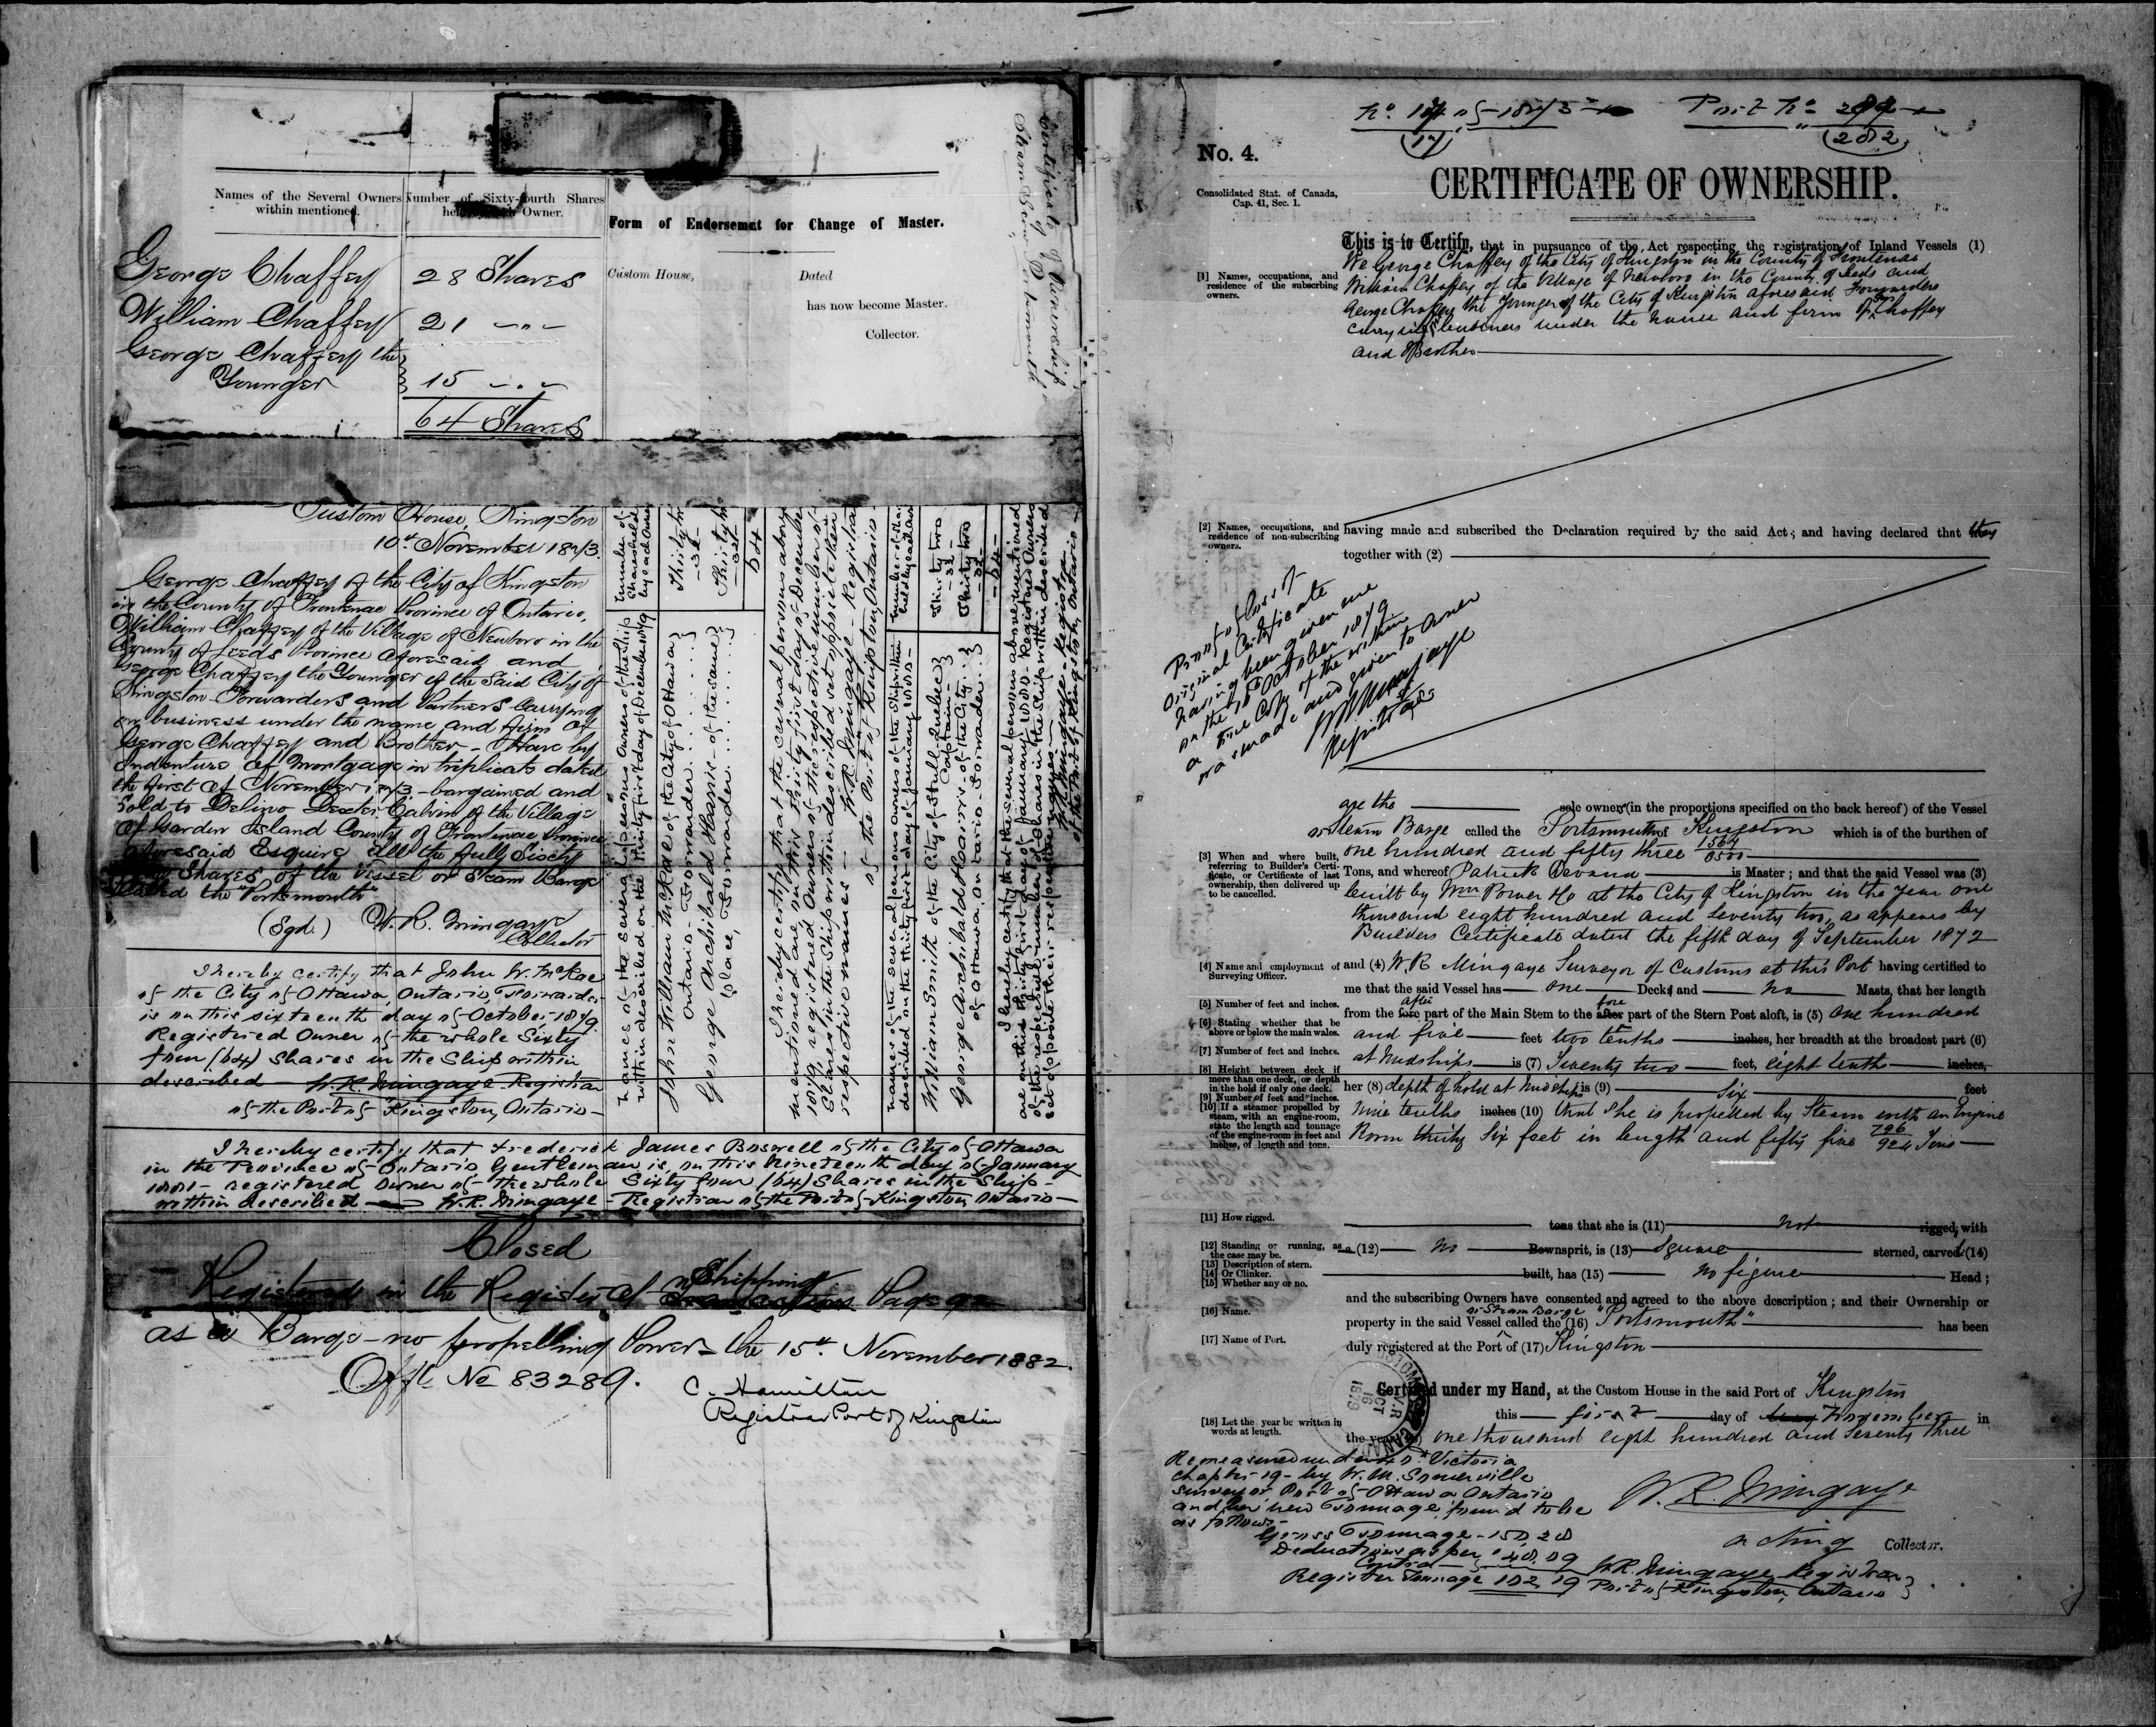 Names of the Several Owners within mentioned.
Number of Sixty-fourth Shares held Owner.
George Chaffey 28 Shares
William Chaffey 21 -"-
George Chaffey the
Younger 15 -"-
64 Shares
Form of Endorsement for Change of Master.
Custom House, Dated
has now become Master.
Collector.
Certificate of Ownership
Steam Barge Portsmouth
Custom House, Kingston
10th November 1873.
George Chaffey of the City of Kingston
in the County of Frontenac Province of Ontario,
William Chaffey of the Village of Newboro in the
County of Leeds Province aforesaid and
George Chaffey the Younger of the Said City of
Kingston Forwarders and Partners carrying
on business under the name and firm of
George Chaffey and Brother - Have by
Indenture of Mortgage in triplicate dated
the first of November 1873 - bargained and
Sold to Delino Dexter Calvin of the Village
of Garden Island County of Frontenac Province
aforesaid Esquire all the fully Sixty
Shares of the Vessel or Steam Barge
called the "Portsmouth"
(Sgd.) W. R. Mingaye
Collector
I hereby certify that John W. McRae
of the City of Ottawa, Ontario, Forwarder
is on this sixteenth day of October 1879
Registered Owner of the whole Sixty
four (64) Shares in the Ship within
described - W.R. Mingaye Registrar
of the Port of Kingston, Ontario -
Names of the several persons Owners of the Ship
within described on the thirty first day of December 1879
Number of
Shares held
by each Owner
John William McRae of the City of Ottawa
Ontario - Forwarder
Thirty two
- 32 -
George Archibald Harris - of the same
place, Forwarder
Thirty two
- 32 -
64
I hereby certify that the several persons above
mentioned are on this thirty first day of December
1879 registered Owners of the respective number of
Shares in the Ship within described set opposite their
respective names - W.R. Mingaye - Registrar
of the Port of Kingston, Ontario -
Names of the several persons owners of the Ship within
described on the thirty first day of January 1880 -
Number of Shares
held by each Owner
William Smith of the City of Hull, Quebec
Captain
Thirty two
- 32 -
George Archibald Harris - of the City
of Ottawa, Ontario - Forwarder
Thirty two
- 32 -
- 64 -
I hereby certify that the several persons above mentioned
are on this thirty first day of January 1880 - Registered Owners
of the respective number of Shares in the Ship within described
set opposite their respective names -
W.R. Mingaye - Registrar
of the Port of Kingston, Ontario -
I hereby certify that Frederick James Boswell of the City of Ottawa
in the Province of Ontario, Gentleman is on this Nineteenth day of January
1881 - registered owner of the whole Sixty four (64) Shares in the Ship -
within described - W.R. Mingaye - Registrar of the Port of Kingston Ontario -
Closed
Registered in the Register of Shipping Page 92
as a Barge - no propelling Power - the 15th November 1882.
Offl. No 83289.
C. Hamilton
Registrar Port of Kingston
No 17 of 1873 Port No 282
(17) (282)
No. 4.
CERTIFICATE OF OWNERSHIP.
Consolidated Stat. of Canada,
Cap. 41, Sec. 1.
This is to Certify, that in pursuance of the Act respecting the registration of Inland Vessels (1)
[1] Names, occupations, and residence of the subscribing owners.
We George Chaffey of the City of Kingston in the County of Frontenac
William Chaffey of the Village of Newboro in the County of Leeds and
George Chaffey the Younger of the City of Kingston aforesaid Forwarders
carrying on business under the name and firm of Geo Chaffey
and Brother
[2] Names, occupations, and residence of non-subscribing owners.
having made and subscribed the Declaration required by the said Act; and having declared that they
together with (2)
Proof of loss of
Original Certificate
having been given me
on the 16th October 1879
a true Copy of the within
was made and given to owner
W.R. Mingaye
Registrar
are the sole owners (in the proportions specified on the back hereof) of the Vessel
or Steam Barge called the Portsmouth of Kingston which is of the burthen of
one hundred and fifty three 1564/8500
[3] When and where built, referring to Builder's Certificate, or Certificate of last ownership, then delivered up to be cancelled.
Tons, and whereof Patrick Devand is Master; and that the said Vessel was (3)
built by Wm Power Co at the City of Kingston in the Year one
thousand eight hundred and Seventy two, as appears by
Builders Certificate dated the fifth day of September 1872
[4] Name and employment of Surveying Officer.
and (4) W. R Mingaye Surveyor of Customs at this Port having certified to
me that the said Vessel has one Deck and no Masts, that her length
[5] Number of feet and inches.
from the fore after part of the Main Stem to the after fore part of the Stern Post aloft, is (5) One hundred
[6] Stating whether that be above or below the main wales.
and five feet two tenths inches, her breadth at the broadest part (6)
[7] Number of feet and inches.
at Midships is (7) Twenty two feet, eight tenths inches,
[8] Height between deck if more than one deck, or depth in the hold if only one deck.
her (8) depth of hold at Midships is (9) Six feet
[9] Number of feet and inches.
[10] If a steamer propelled by steam, with an engine-room, state the length and tonnage of the engine-room in feet and inches, of length and tons.
nine tenths inches (10) that she is propelled by Steam with an Engine
Room thirty Six feet in length and fifty five 796/924 Tons
[11] How rigged.
tons that she is (11) not rigged, with
[12] Standing or running, as the case may be.
a (12) no Bowsprit, is (13) Square sterned, carvel (14)
[13] Description of stern.
[14] Or Clinker.
[15] Whether any or no.
built, has (15) no figure Head;
and the subscribing Owners have consented and agreed to the above description; and their Ownership or
[16] Name.
property in the said Vessel or Steam Barge called the (16) "Portsmouth" has been
[17] Name of Port.
duly registered at the Port of (17) Kingston
CUSTOMS CANADA V.R OCT 16 1879
Certified under my Hand, at the Custom House in the said Port of Kingston
this first day of November in
[18] Let the year be written in words at length.
the year one thousand eight hundred and Seventy three
W. R. Mingaye
Acting Collector.
Remeasured under Victoria
chapter 19 - by W. M. Somerville
Surveyor Port of Ottawa Ontario
and her new Tonnage found to be
as follows -
Gross Tonnage - 150.28
Deductions as per
Contra 48.09
Register Tonnage 102.19
W.R. Mingaye Registrar
Port of Kingston, Ontario